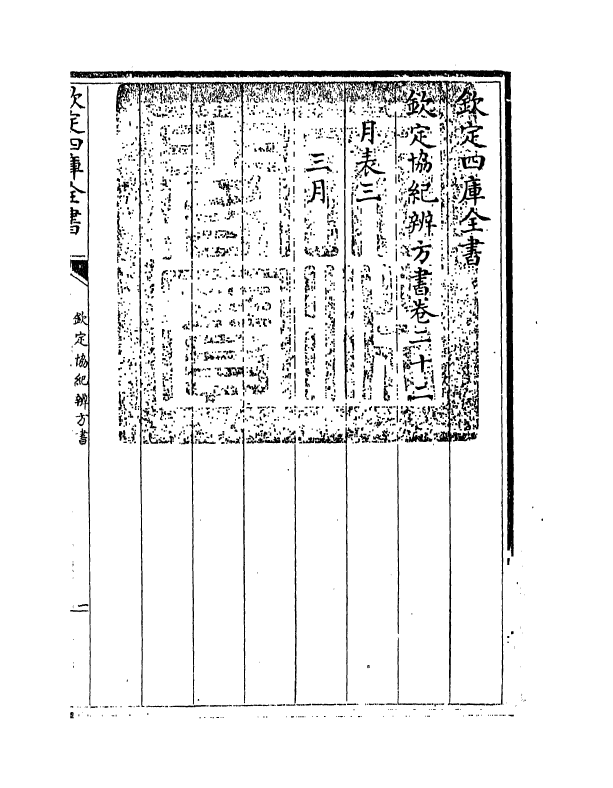 欽定四庫全書
欽定協紀辨方書卷二十二
月表三
三月
欽定四庫全書
欽定協紀辨方書
一